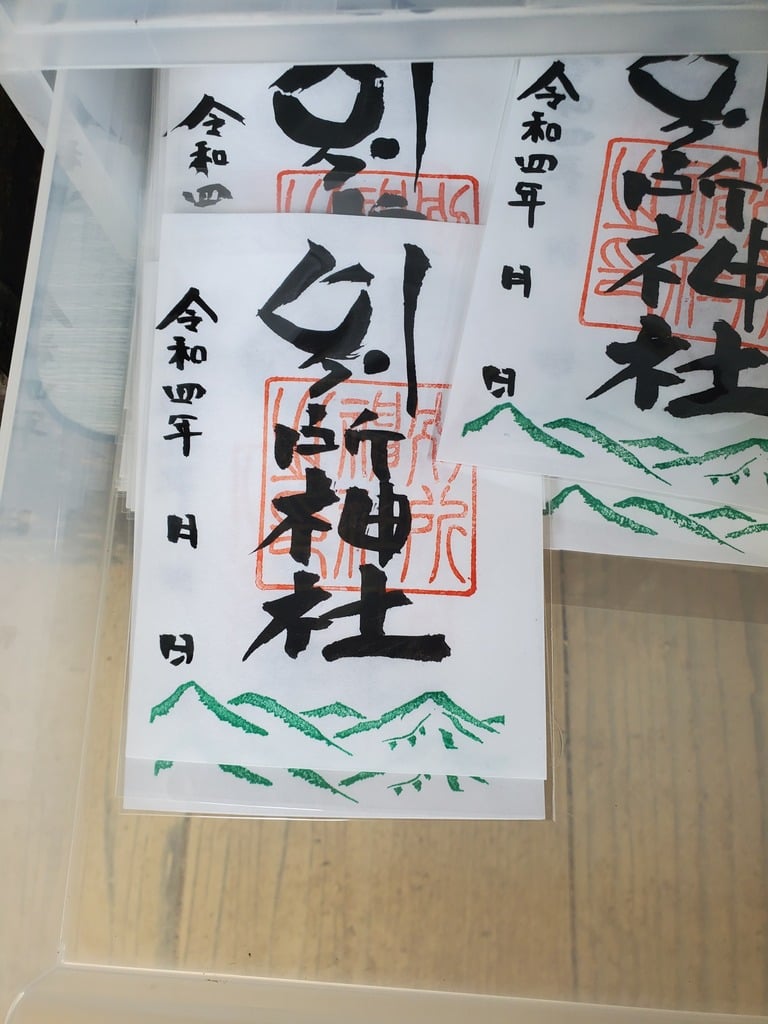 別所神社
令和四年 月 日
別所
令和四
別所神社
令和四年 月 日